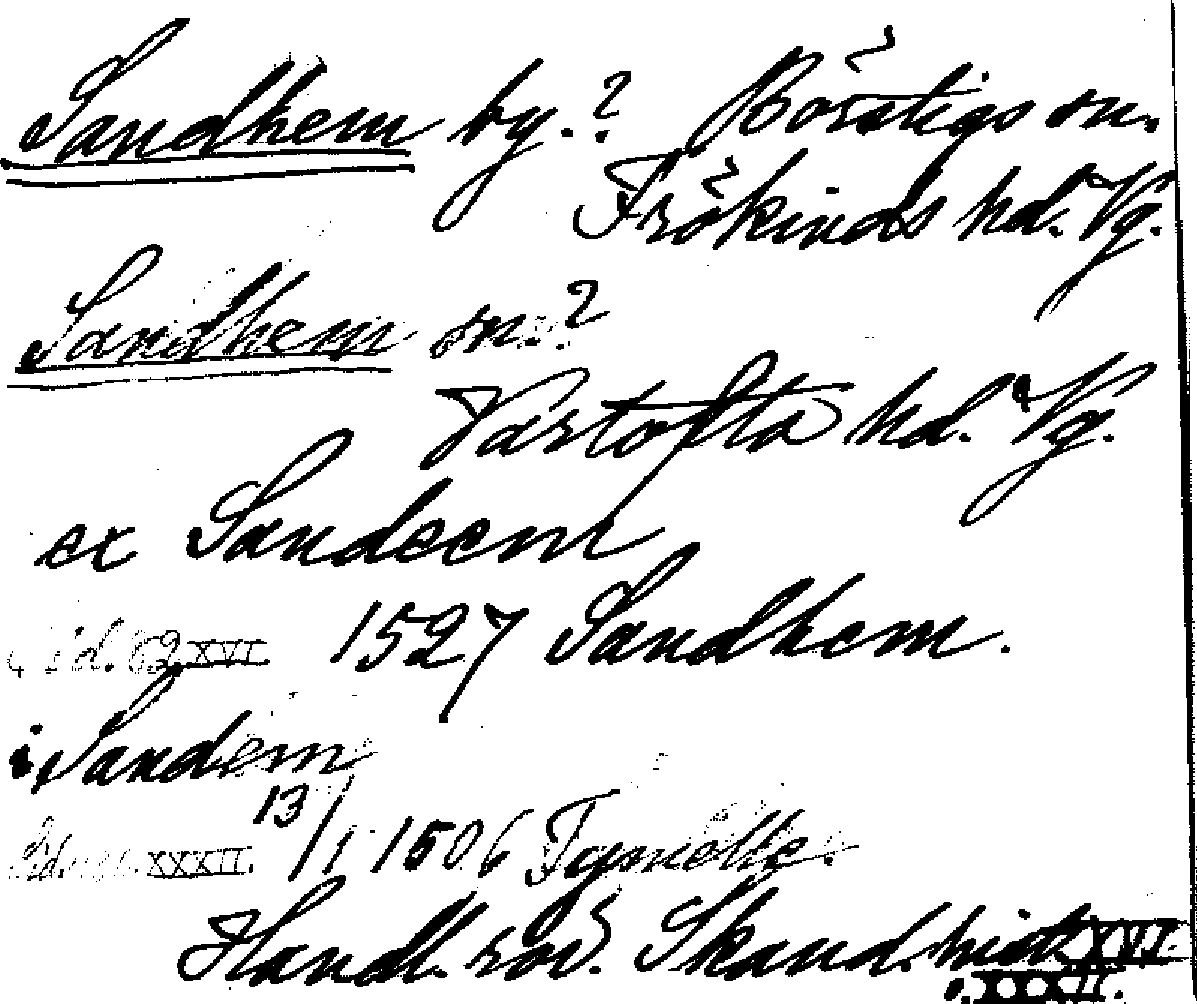 Sandhem by.? Börstigs sn.
Frökinds hd. Vg.
Sandhem sn.?
Vartofta hd. Vg.
ex Sandeem
sid. 62 XVI 1527 Sandhem.
i Sandem
XXXII. 13/1 1506 Tynnelle.
Handl. rör. Skand. hist. XVI.
o. XXXII.